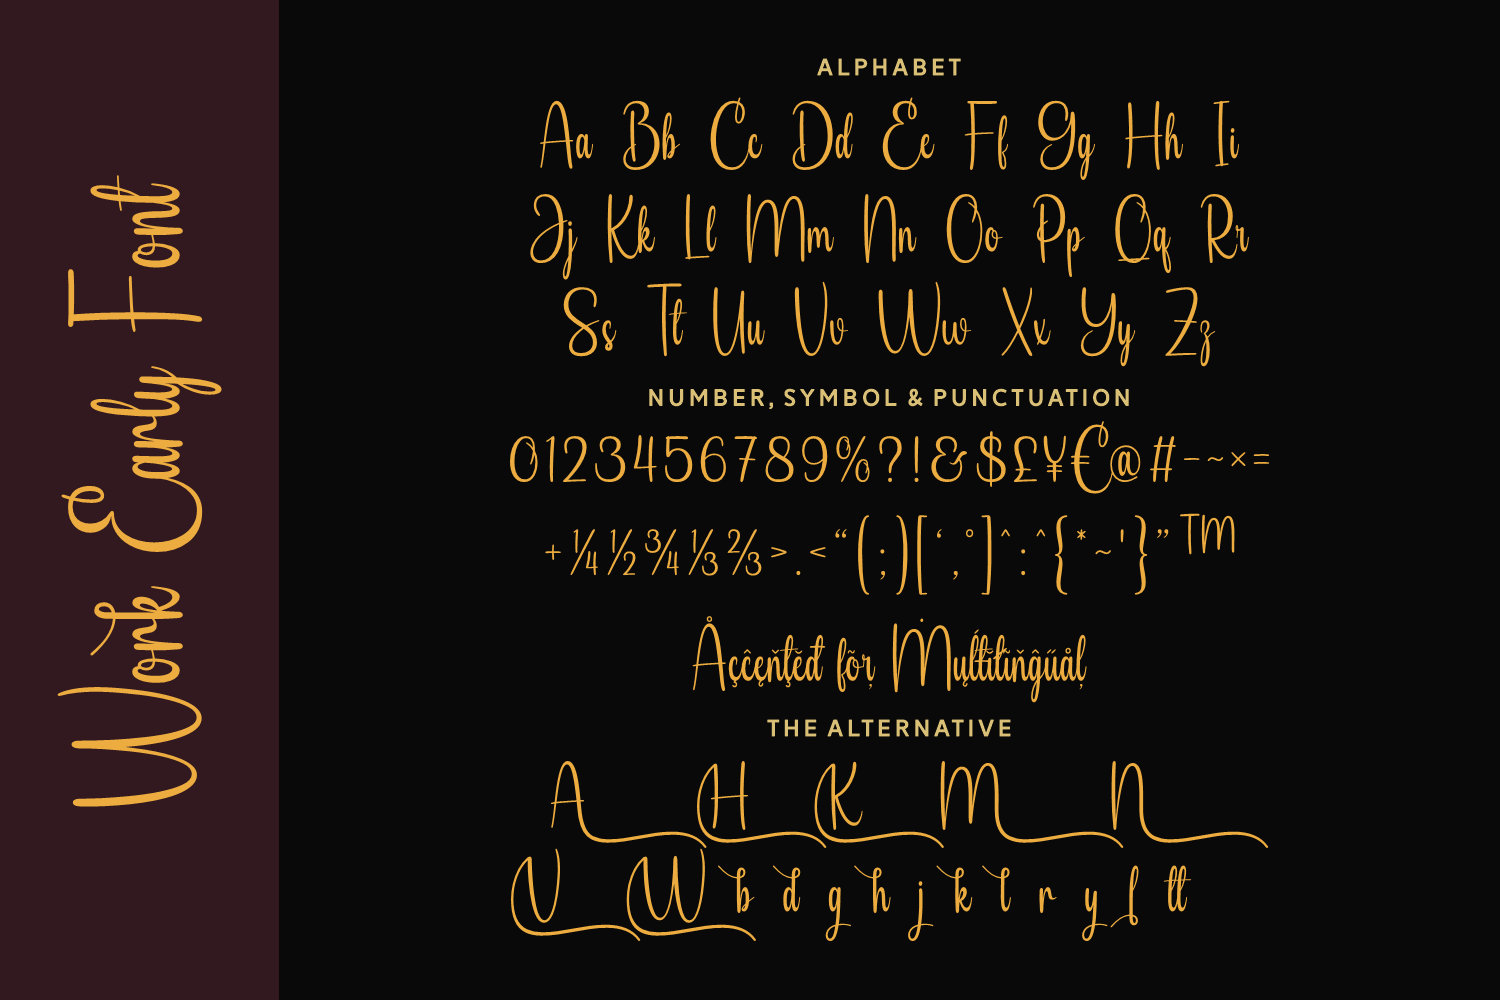 Work Early Font
ALPHABET
Aa Bb Cc Dd Ee Ff Gg Hh Ii
Jj Kk Ll Mm Nn Oo Pp Qq Rr
Ss Tt Uu Vv Ww Xx Yy Zz
NUMBER, SYMBOL & PUNCTUATION
0123456789%?!&$£¥€@#-~×=
+¼½¾⅓⅔>.<“(;)[‘,°]^:^{*~'}”™
Åçĉęňţěđ fõŗ Ṁųĺťıľıňĝűåļ
THE ALTERNATIVE
A H K M N
V W b d g h j k l r y f tt